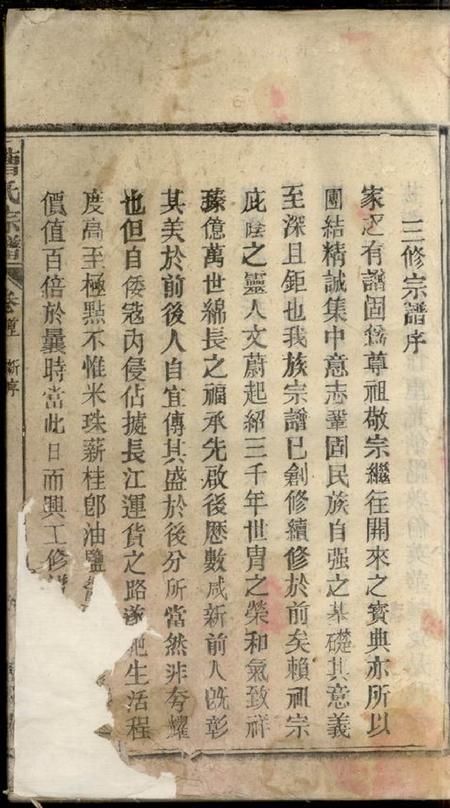 三修宗譜序
家之有譜固爲尊祖敬宗繼往開來之寶典亦所以
團結精誠集中意志鞏固民族自强之基礎其意義
至深且鉅也我族宗譜已創修續修於前矣賴祖宗
庇廕之靈人文蔚起紹三千年世冑之榮和氣致祥
臻億萬世綿長之福承先啟後歷數咸新前人旣彰
其美於前後人自宜傳其盛於後分所當然非夸耀
也但自倭寇內侵佔據長江運貨之路遂 生活程
度高至極點不惟米珠薪桂卽油鹽
價值百倍於曩時當此日而興工修
曹氏宗譜
卷 新序